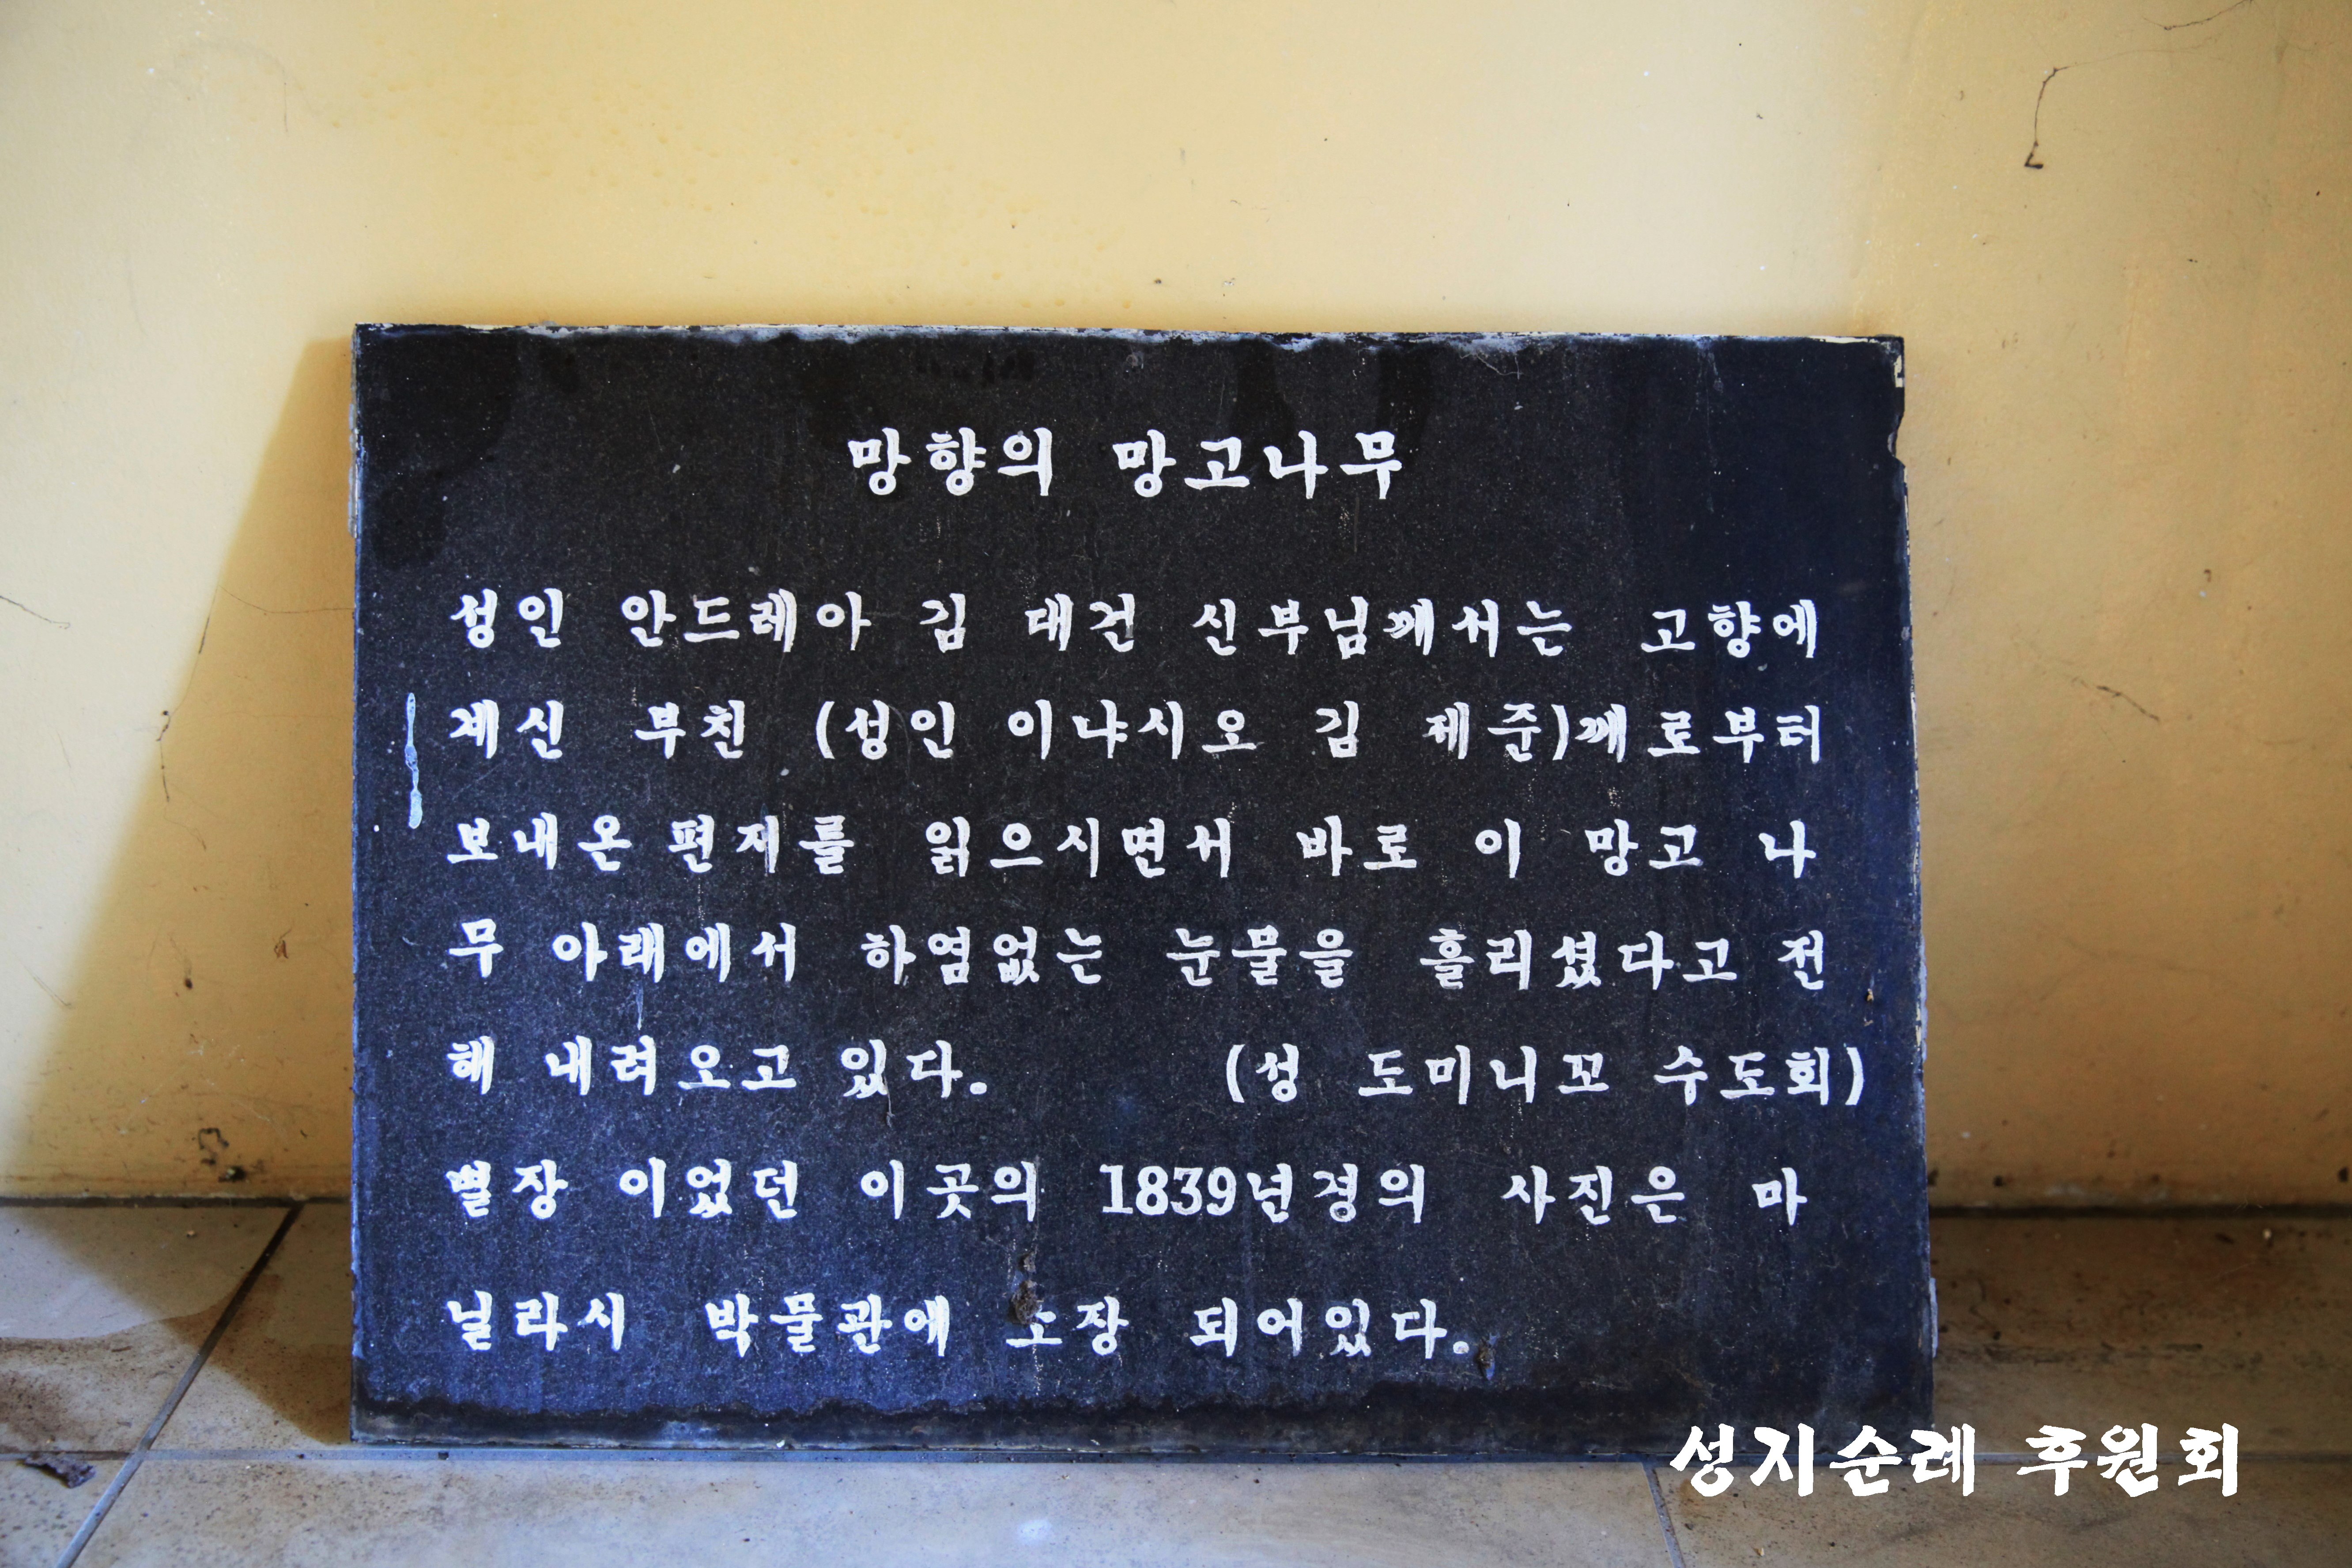 망향의 망고나무
성인 안드레아 김 대건 신부님께서는 고향에
계신 부친 (성인 이냐시오 김 제준)께로부터
보내온 편지를 읽으시면서 바로 이 망고 나
무 아래에서 하염없는 눈물을 흘리셨다고 전
해 내려오고 있다. (성 도미니꼬 수도회)
별장 이었던 이곳의 1839년경의 사진은 마
닐라시 박물관에 소장 되어있다.
성지순례 후원회